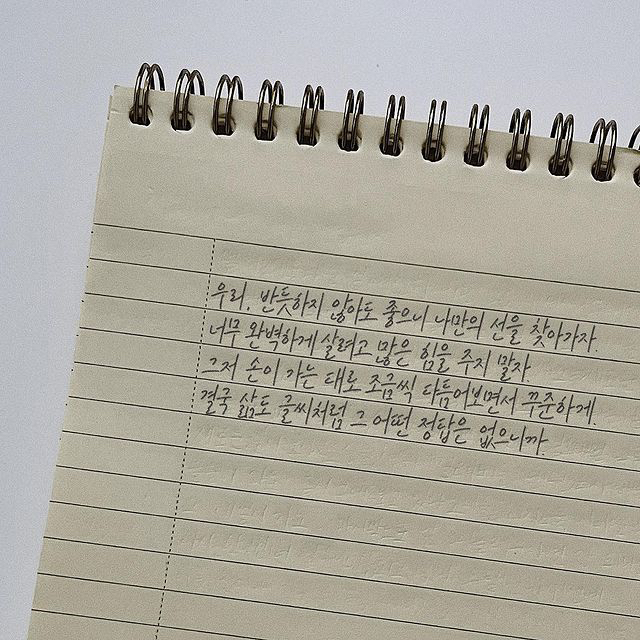 우리, 반듯하지 않아도 좋으니 나만의 선을 찾아가자.
너무 완벽하게 살려고 많은 힘을 주지 말자.
그저 손이 가는 태로 조금씩 다듬어보면서 꾸준하게.
결국 삶도 글씨처럼 그 어떤 정답은 없으니까.